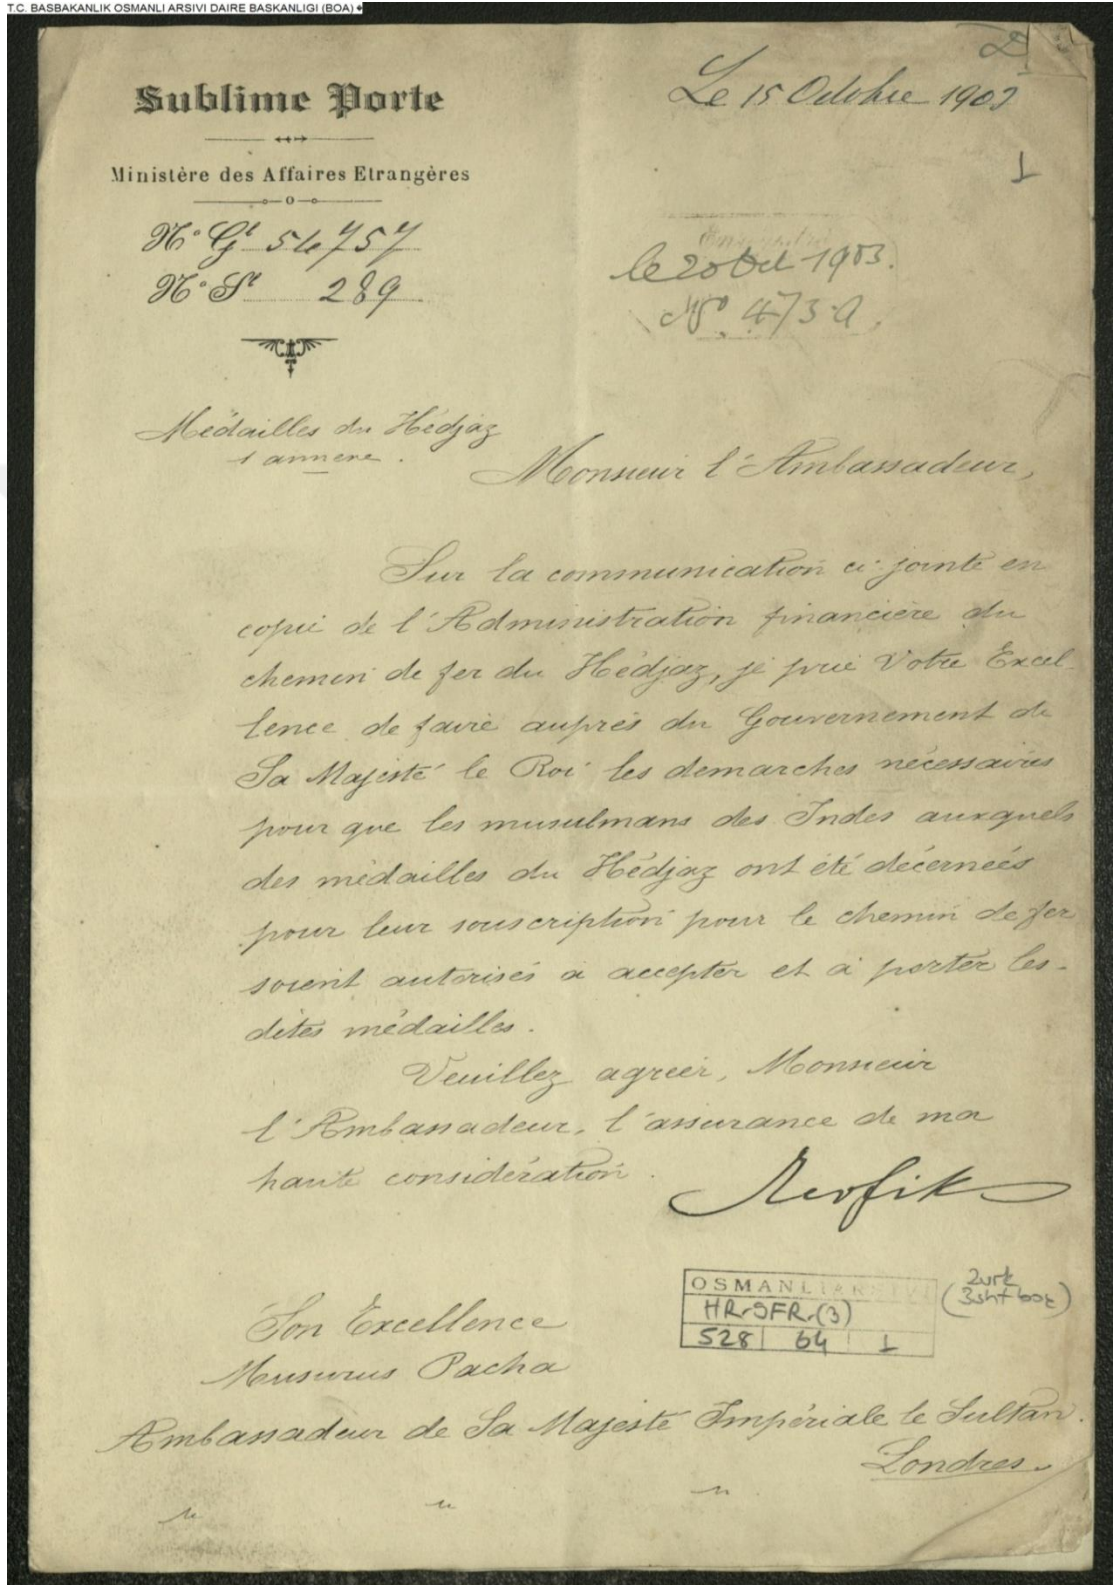 T.C. BASBAKANLIK OSMANLI ARSIVI DAIRE BASKANLIGI (BOA)
Sublime Porte
Le 15 Octobre 1903
Ministère des Affaires Etrangères
1
N° Gl 54757
N° Sl 289
le 20 Oct 1903.
N° 473
Médailles du Hédjaz
1 annexe.
Monsieur l'Ambassadeur,
Sur la communication ci-jointe en
copie de l'Administration financière du
chemin de fer du Hédjaz, je prie Votre Excel-
lence de faire auprès du Gouvernement de
Sa Majesté le Roi les démarches nécessaires
pour que les musulmans des Indes auxquels
des médailles du Hédjaz ont été décernées
pour leur souscription pour le chemin de fer
soient autorisés à accepter et à porter les-
dites médailles.
Veuillez agréer, Monsieur
l'Ambassadeur, l'assurance de ma
haute considération.
Tevfik
OSMANLI ARŞİVİ
HR.SFR.(3)
528 64 1
Son Excellence
Musurus Pacha
Ambassadeur de Sa Majesté Impériale le Sultan.
Londres